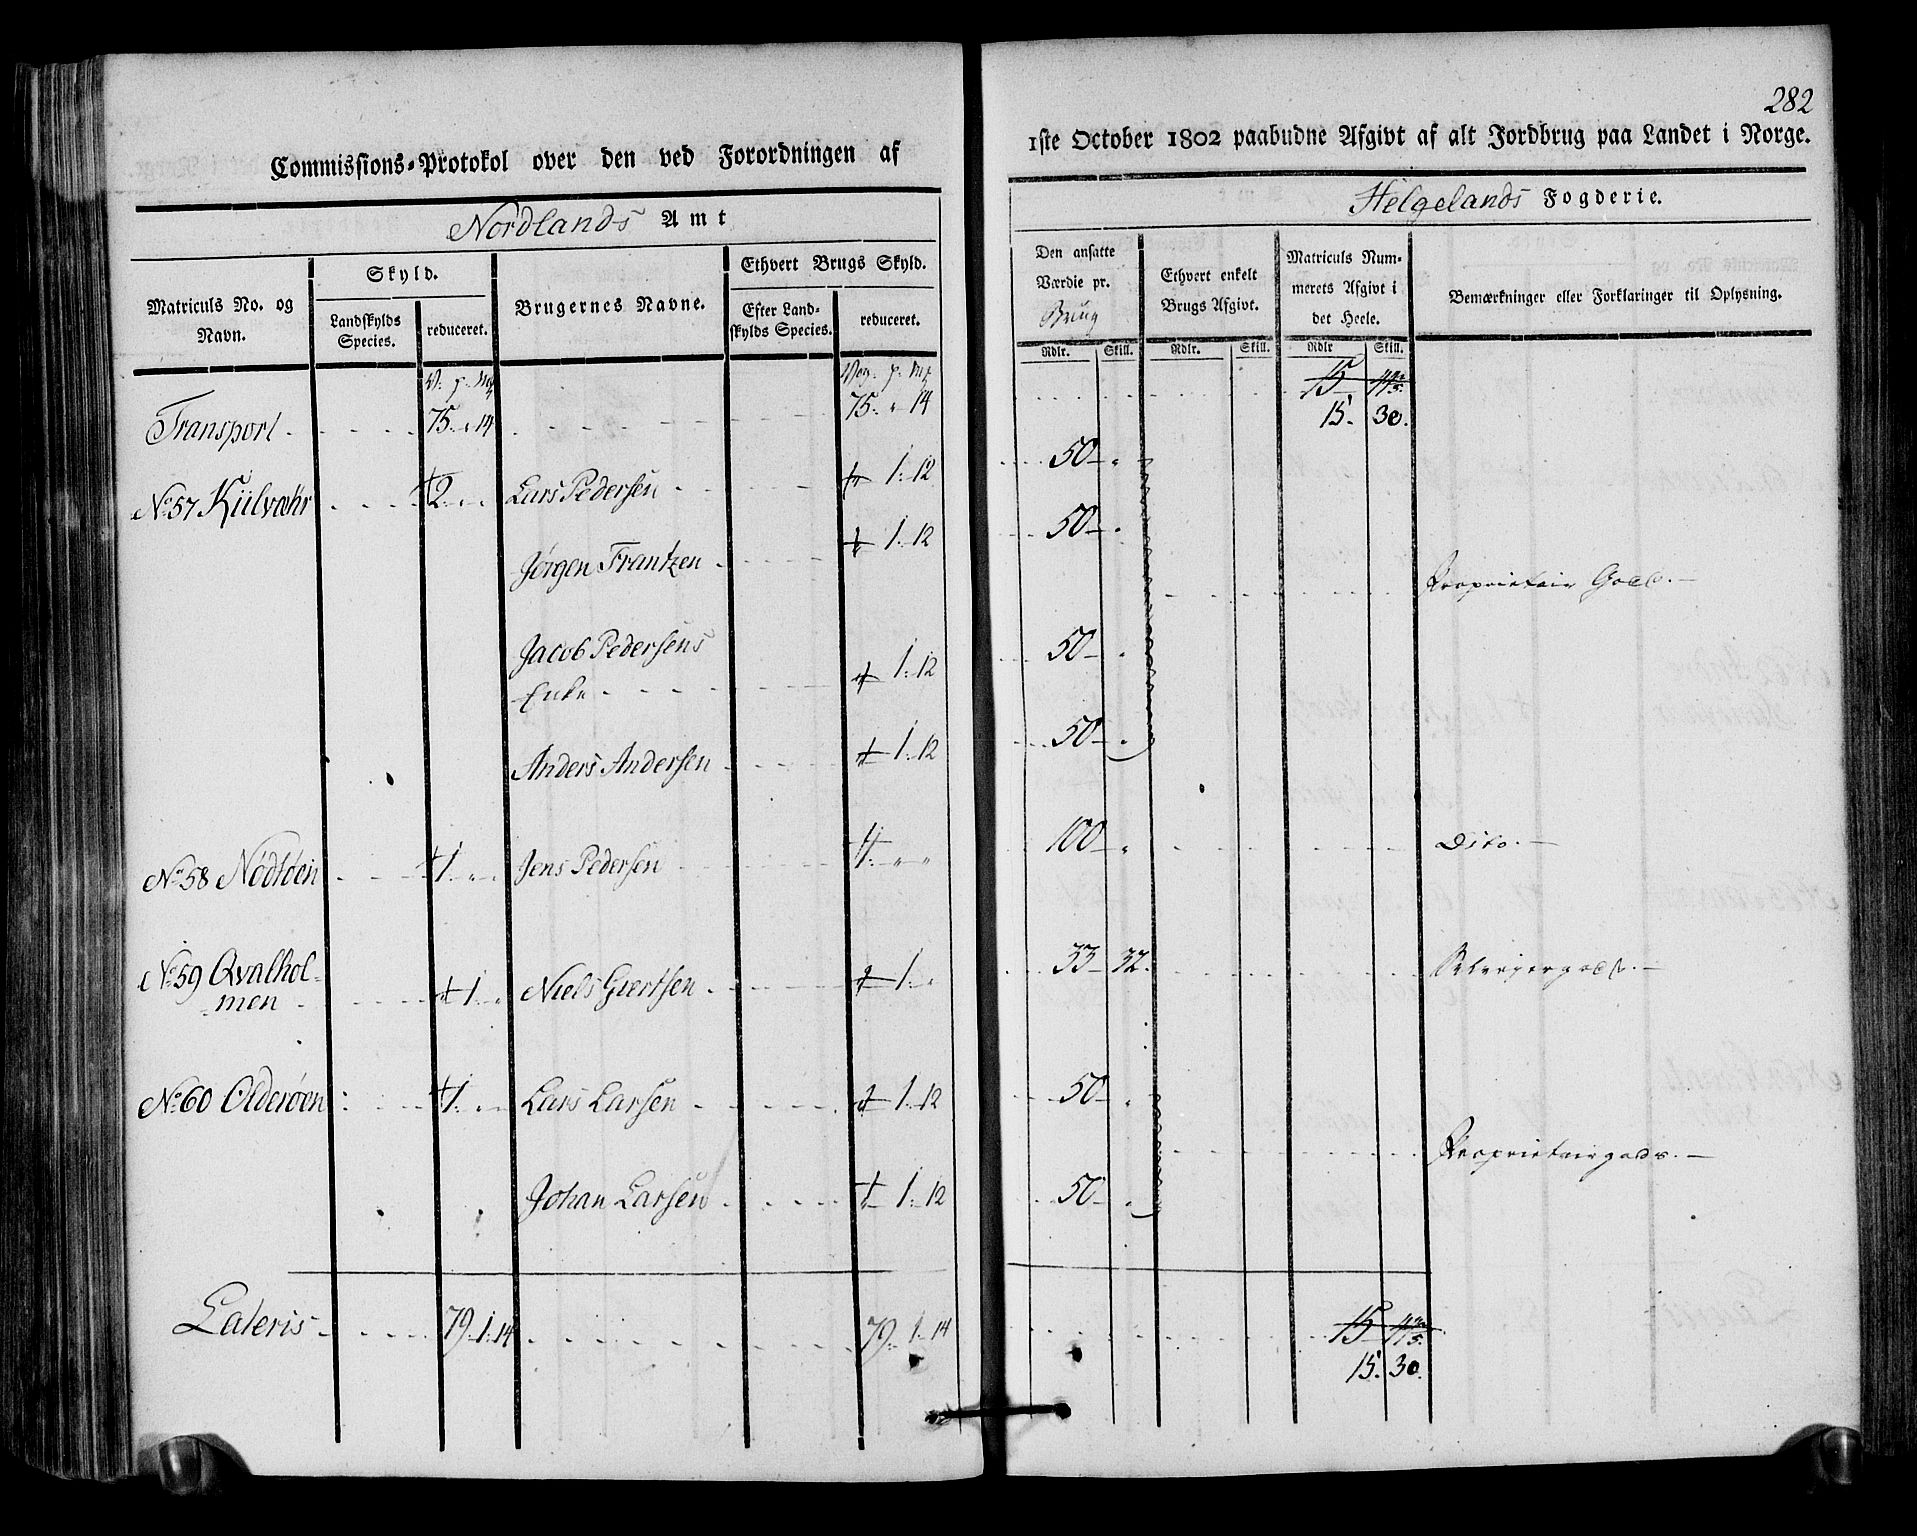 282
Commissions-Protokol over den ved Forordningen af
1ste October 1802 paabudne Afgivt af alt Jordbrug paa Landet i Norge.
Nordlands Amt
Helgelands Fogderie.
Matriculs No. og Navn.
Skyld.
Landskylds Species.
reduceret.
Brugernes Navne.
Ethvert Brugs Skyld.
Efter Landskylds Species.
reduceret.
Den ansatte Værdie pr. Brug
Ethvert enkelt Brugs Afgivt.
Matriculs Nummerets Afgivt i det Heele.
Bemærkninger eller Forklaringer til Oplysning.
Rdlr. Skill. Rdlr. Skill. Rdlr Skill.
Transport 75 " 14 75 " 14 15
15. 30.
No 57 Kiilvæhr 2 " " Lars Pedersen 1: 12 50 "
Jørgen Frantzen 1: 12 50 " Proprietair Gods.
Jacob Pedersens
Enke 1: 12 50 "
Anders Andersen 1: 12 50 "
No 58 Nödtöen 1 " " Jens Pedersen 1: " " 100 " Dito.
No 59 Qvalhol-
men 1: " Niels Giertsen 1: " 33 32.
No 60 Olderöen 1: " " Lars Larsen 1: 12 50 "
Proprietairgods.
Johan Larsen 1: 12 50 "
Lateris 79 1: 14 79 1 14 15
15. 30.